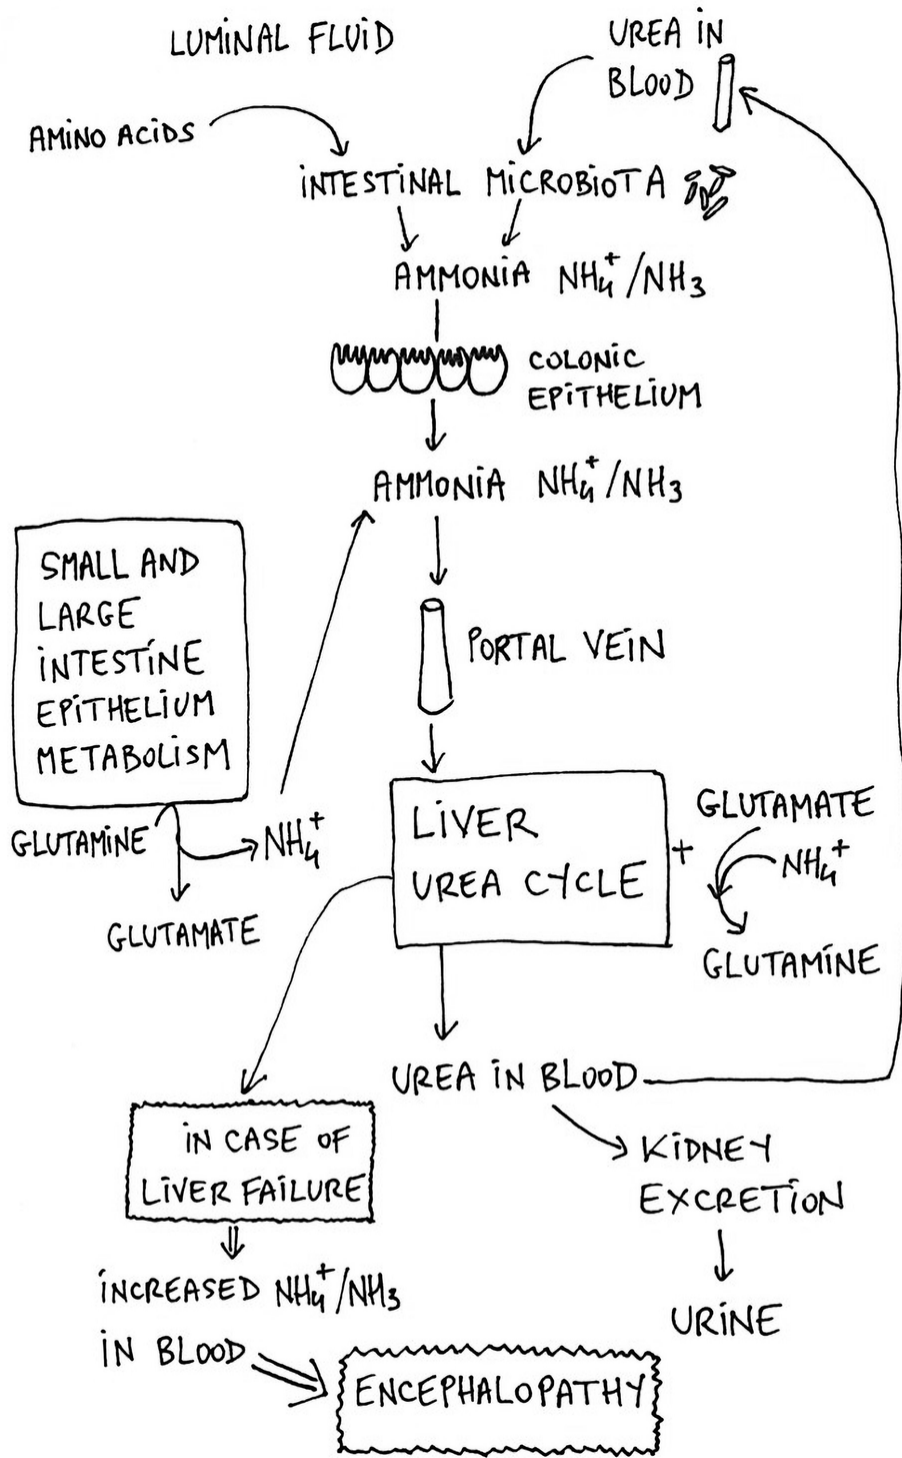 LUMINAL FLUID
UREA IN
BLOOD
AMINO ACIDS
INTESTINAL MICROBIOTA
AMMONIA NH₄⁺/NH₃
COLONIC
EPITHELIUM
AMMONIA NH₄⁺/NH₃
SMALL AND
LARGE
INTESTINE
EPITHELIUM
METABOLISM
PORTAL VEIN
GLUTAMINE
NH₄⁺
GLUTAMATE
LIVER
UREA CYCLE
+
GLUTAMATE
NH₄⁺
GLUTAMINE
UREA IN BLOOD
IN CASE OF
LIVER FAILURE
KIDNEY
EXCRETION
INCREASED NH₄⁺/NH₃
IN BLOOD
URINE
ENCEPHALOPATHY